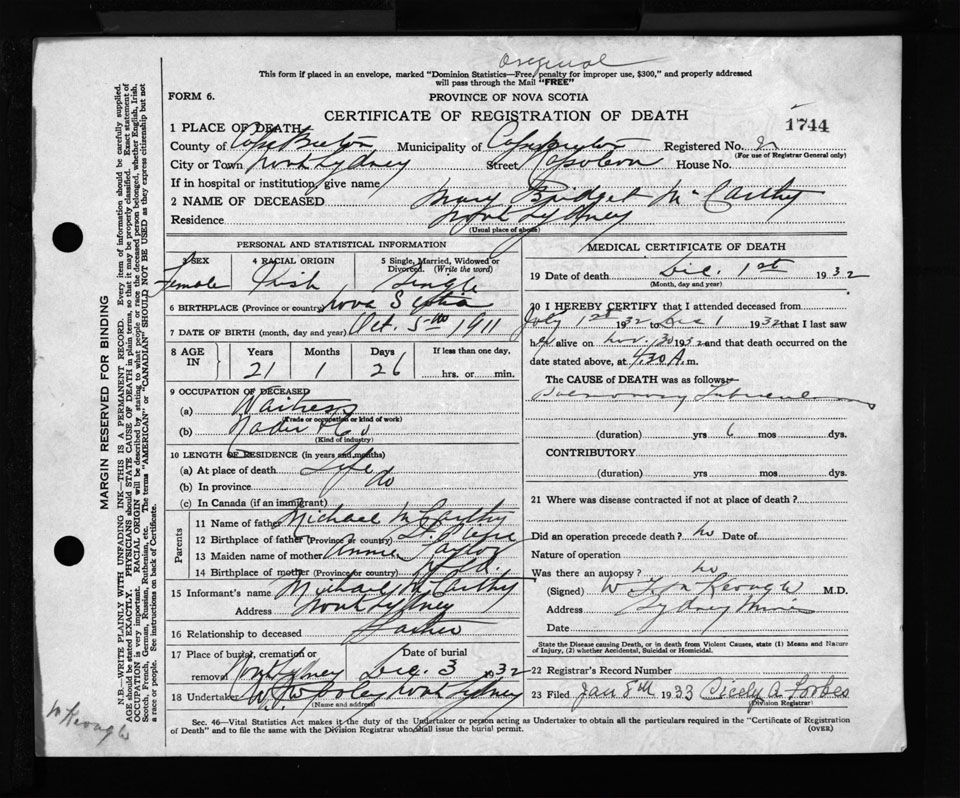 Original
This form if placed in an envelope, marked "Dominion Statistics—Free, penalty for improper use, $300," and properly addressed
will pass through the Mail "FREE"
FORM 6.
PROVINCE OF NOVA SCOTIA
CERTIFICATE OF REGISTRATION OF DEATH
1744
1 PLACE OF DEATH
County of Cape Breton Municipality of Cape Breton Registered No.
(For use of Registrar General only)
City or Town North Sydney Street Napoleon House No.
If in hospital or institution, give name
2 NAME OF DECEASED Mary Bridget McCarthy
Residence North Sydney
(Usual place of abode)
PERSONAL AND STATISTICAL INFORMATION
3 SEX 4 RACIAL ORIGIN 5 Single, Married, Widowed or
Divorced. (Write the word)
Female Irish Single
6 BIRTHPLACE (Province or country) Nova Scotia
7 DATE OF BIRTH (month, day and year) Oct. 5th 1911
8 AGE IN Years Months Days If less than one day,
21 1 26 hrs. or min.
9 OCCUPATION OF DECEASED
(a) Waitress
(Trade or occupation or kind of work)
(b)
(Kind of industry)
10 LENGTH OF RESIDENCE (in years and months)
(a) At place of death Life
(b) In province do
(c) In Canada (if an immigrant)
Parents
11 Name of father Michael McCarthy
12 Birthplace of father (Province or country) St. Pierre
13 Maiden name of mother Annie Taylor
14 Birthplace of mother (Province or country) Nfld.
15 Informant's name Michael McCarthy
Address North Sydney
16 Relationship to deceased Father
17 Place of burial, cremation or Date of burial
removal North Sydney Dec. 3 1932
18 Undertaker North Sydney
(Name and address)
MEDICAL CERTIFICATE OF DEATH
19 Date of death Dec. 1st 1932
(Month, day and year)
20 I HEREBY CERTIFY that I attended deceased from
July 1st 1932 to Dec 1 1932 that I last saw
her alive on Nov. 30 1932 and that death occurred on the
date stated above, at 4.30 A.m.
The CAUSE of DEATH was as follows:
Pulmonary Tuberculosis
(duration) yrs 6 mos dys.
CONTRIBUTORY
(duration) yrs mos dys.
21 Where was disease contracted if not at place of death?
Did an operation precede death? no Date of
Nature of operation
Was there an autopsy? no
(Signed) Keough M.D.
Address Sydney Mines
Date
State the Disease causing Death, or in death from Violent Causes, state (1) Means and Nature
of Injury, (2) whether Accidental, Suicidal or Homicidal.
22 Registrar's Record Number
23 Filed Jan 8th 1933 Cicely A. Forbes
(Division Registrar)
Sec. 46—Vital Statistics Act makes it the duty of the Undertaker or person acting as Undertaker to obtain all the particulars required in the "Certificate of Registration
of Death" and to file the same with the Division Registrar who shall issue the burial permit.
(OVER)
MARGIN RESERVED FOR BINDING
N.B.—WRITE PLAINLY WITH UNFADING INK—THIS IS A PERMANENT RECORD. Every item of information should be carefully supplied.
AGE should be stated EXACTLY. PHYSICIANS should STATE CAUSE OF DEATH in plain terms, so that it may be properly classified. Exact statement of
OCCUPATION is very important. RACIAL ORIGIN will be described by stating to what people or race the deceased person belonged, whether English, Irish,
Scotch, French, German, Russian, Ruthenian, etc. The terms "AMERICAN" or "CANADIAN" SHOULD NOT BE USED as they express citizenship but not
a race or people. See instructions on back of Certificate.
W Keough